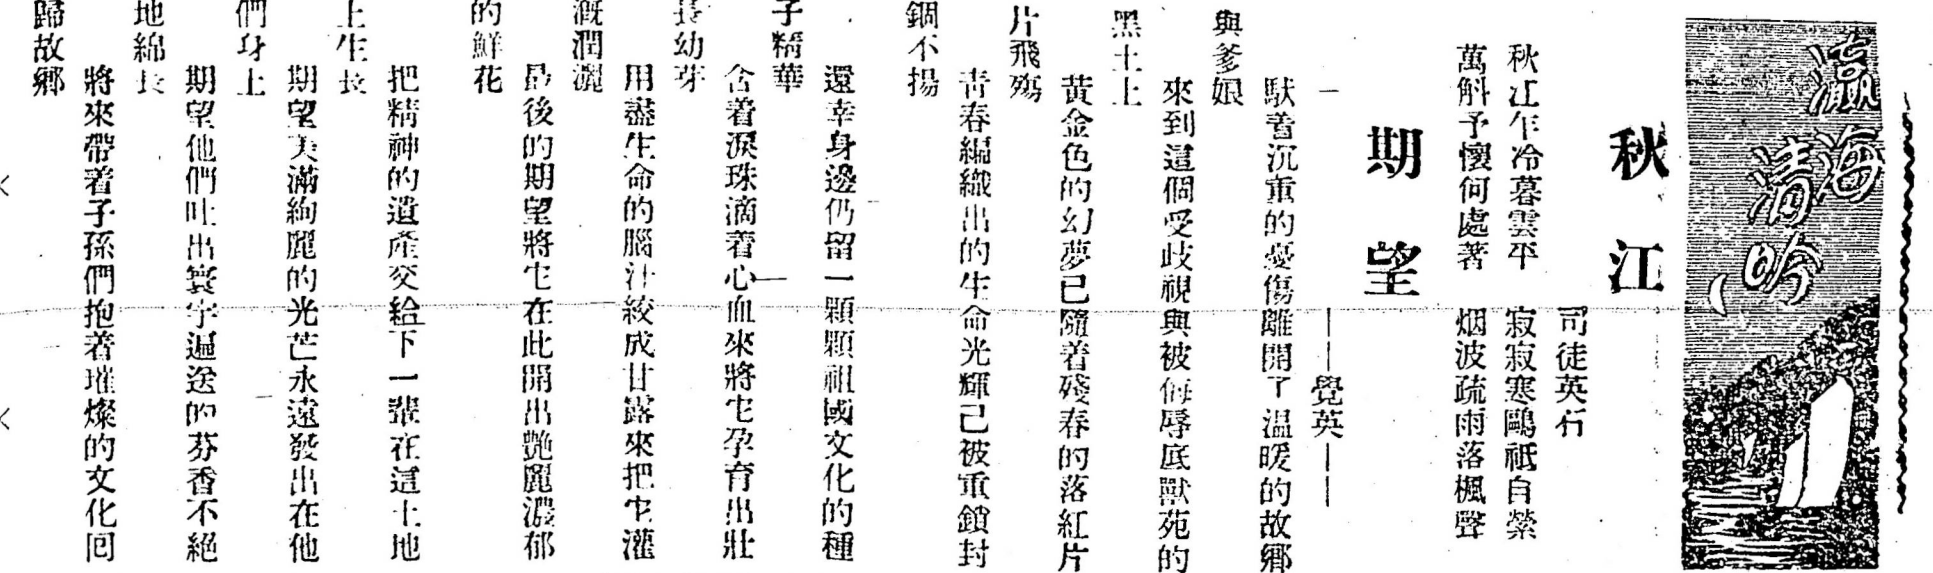 瀛海清吟
秋江
司徒英石
秋江乍冷暮雲平　寂寂寒鷗祇自縈
萬斛予懷何處著　烟波疏雨落楓聲
期望
——覺英——
馱着沉重的憂傷離開了温暖的故鄉
與爹娘
來到這個受歧視與被侮辱底獸苑的
黑土上
黃金色的幻夢已隨着殘春的落紅片
片飛殤
青春編織出的生命光輝已被重鎖封
錮不揚
還幸身邊仍留一顆顆祖國文化的種
子精華
含着淚珠滴着心血來將它孕育出壯
長幼芽
用盡生命的腦汁絞成甘露來把它灌
溉潤灑
最後的期望將它在此開出艷麗濃郁
的鮮花
把精神的遺產交給下一輩在這土地
上生長
期望美滿絢麗的光芒永遠發出在他
們身上
期望他們吐出寰宇遍送的芬香不絕
地綿長
將來帶着子孫們抱着璀燦的文化囘
歸故鄉